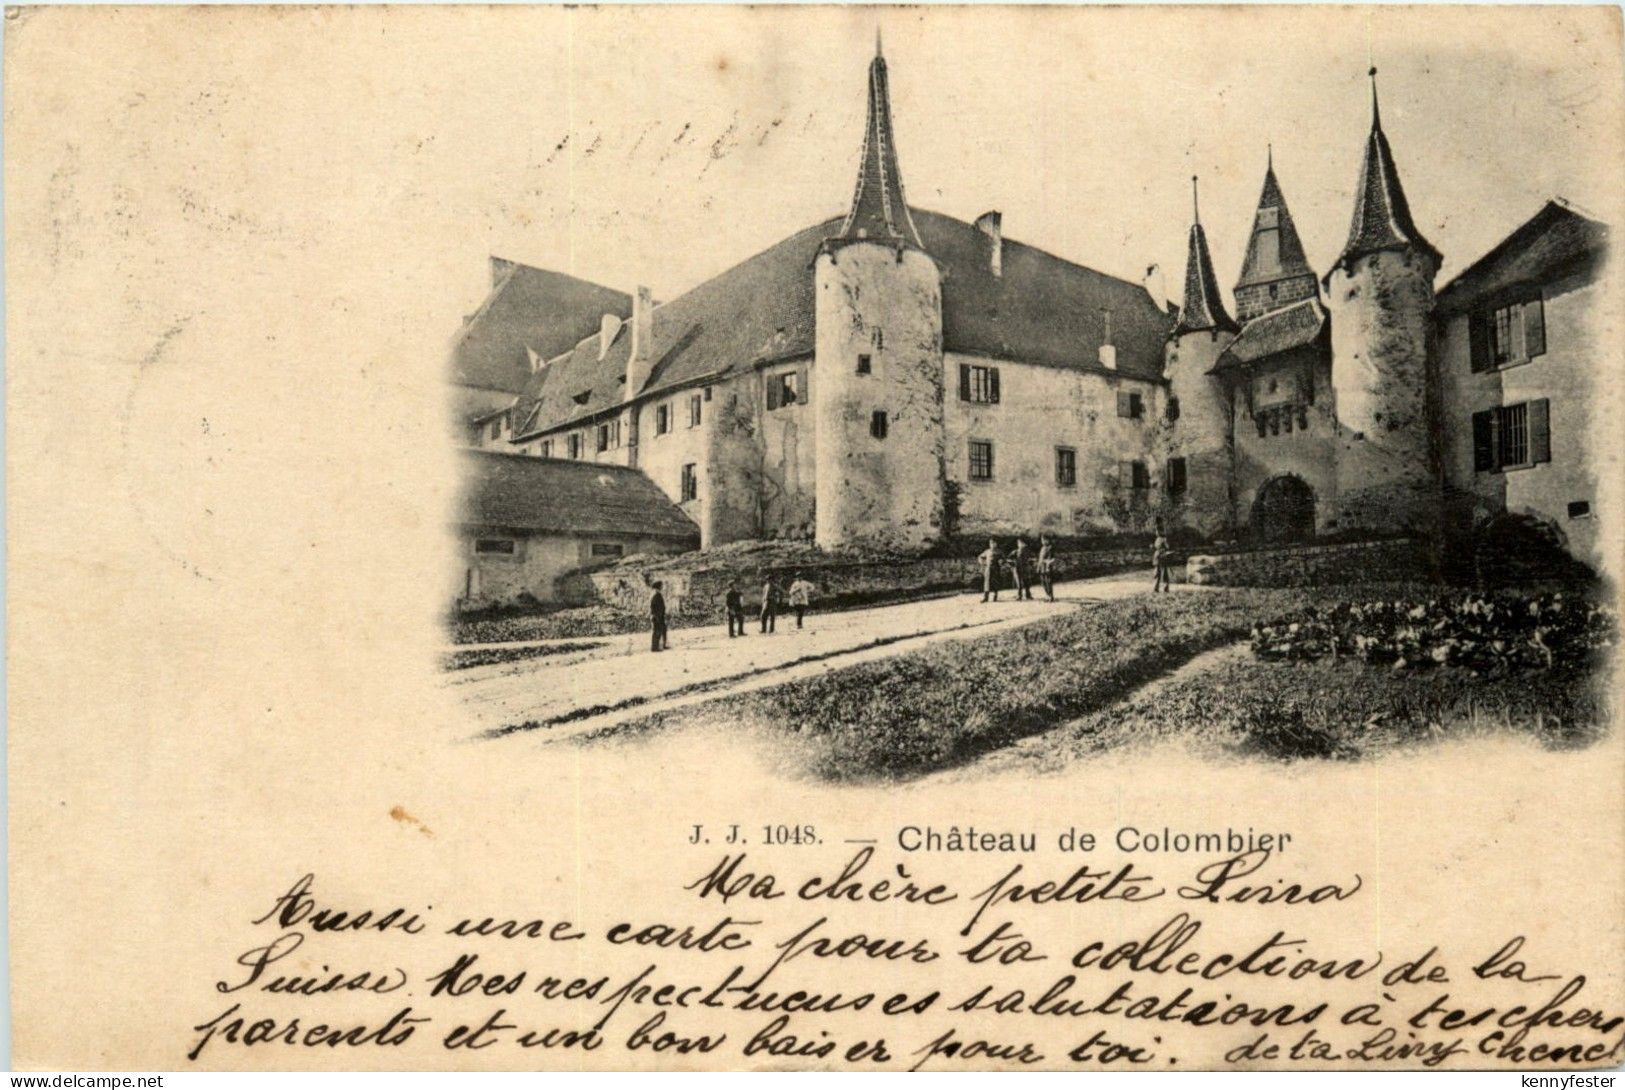 J. J. 1048. — Château de Colombier
Ma chère petite
Aussi une carte pour ta collection de la
Suisse. Mes respectueuses salutations à tes chers
parents et un bon baiser pour toi. de ta
kennyfester